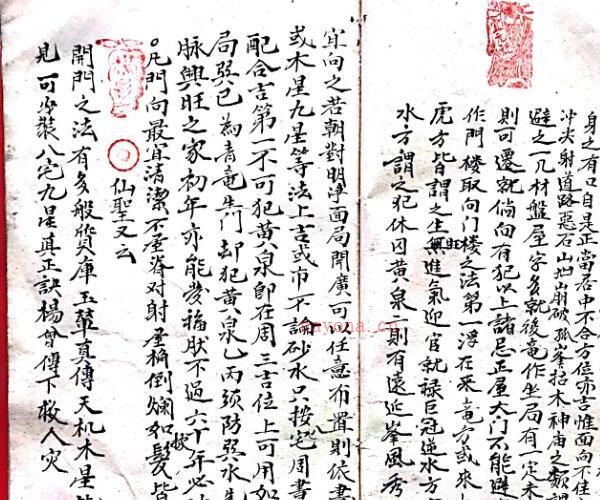 身之有口自是正當居中不合方位亦吉惟面向不佳
冲尖射道路惡石山地崩破孤峯枯木神庙之類
避之一凡材盤屋字多就後竜作坐局有一定
則可遷就倘向有犯以上諸忌正屋大门不能
作門楼取向门楼之法第一浮在来竜方或来
虎方皆謂之生旺無進氣迎官就禄巨冠逆水方
水方謂之犯休囚黄八泉二則有遠近峯風
宜向之若朝對明净面局開廣可任意布置則
或木星九星等法上吉或市不論砂水只按宅周書
配合吉第一不可犯黄八泉即在周三吉位上可用如
局巽巳為青竜生门却犯黄八泉乙丙須防巽水
脉興旺之家初年亦能发福肤不過六十年必
凡門向最宜清潔不屋脊对射屋桷倒爛如髮皆
仙聖又云
開門之法有多般貨庫玉輦真傳天机木星
見可步裝八宅九星真正訣楊曾傳下救人灾